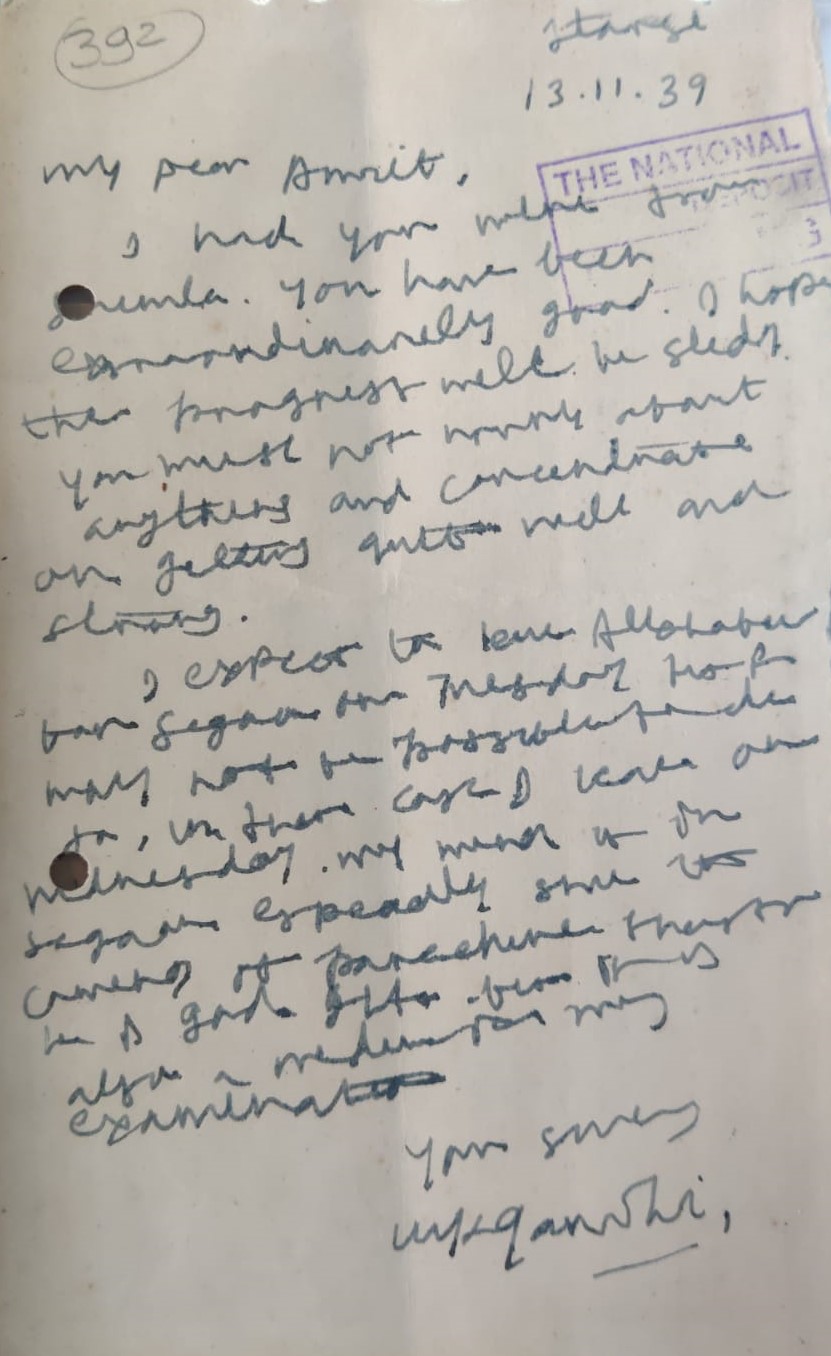 392
13.11.39
THE NATIONAL
DEPOSIT
3
My Dear Amrit,
I had your from
Simla. You have been
extraordinarily good. I hope
the progress will be stedy.
You must not worry about
anything and concentrate
on getting quite well and
strong.
I expect to leave Allahabad
for Segaon on Tuesday but it
may not be possible to do
so, in that case I leave on
Wednesday. My mind is in
Segaon especially since the
coming of
he is God's gift. But it is
also a my
examination
Yours
MKGandhi,